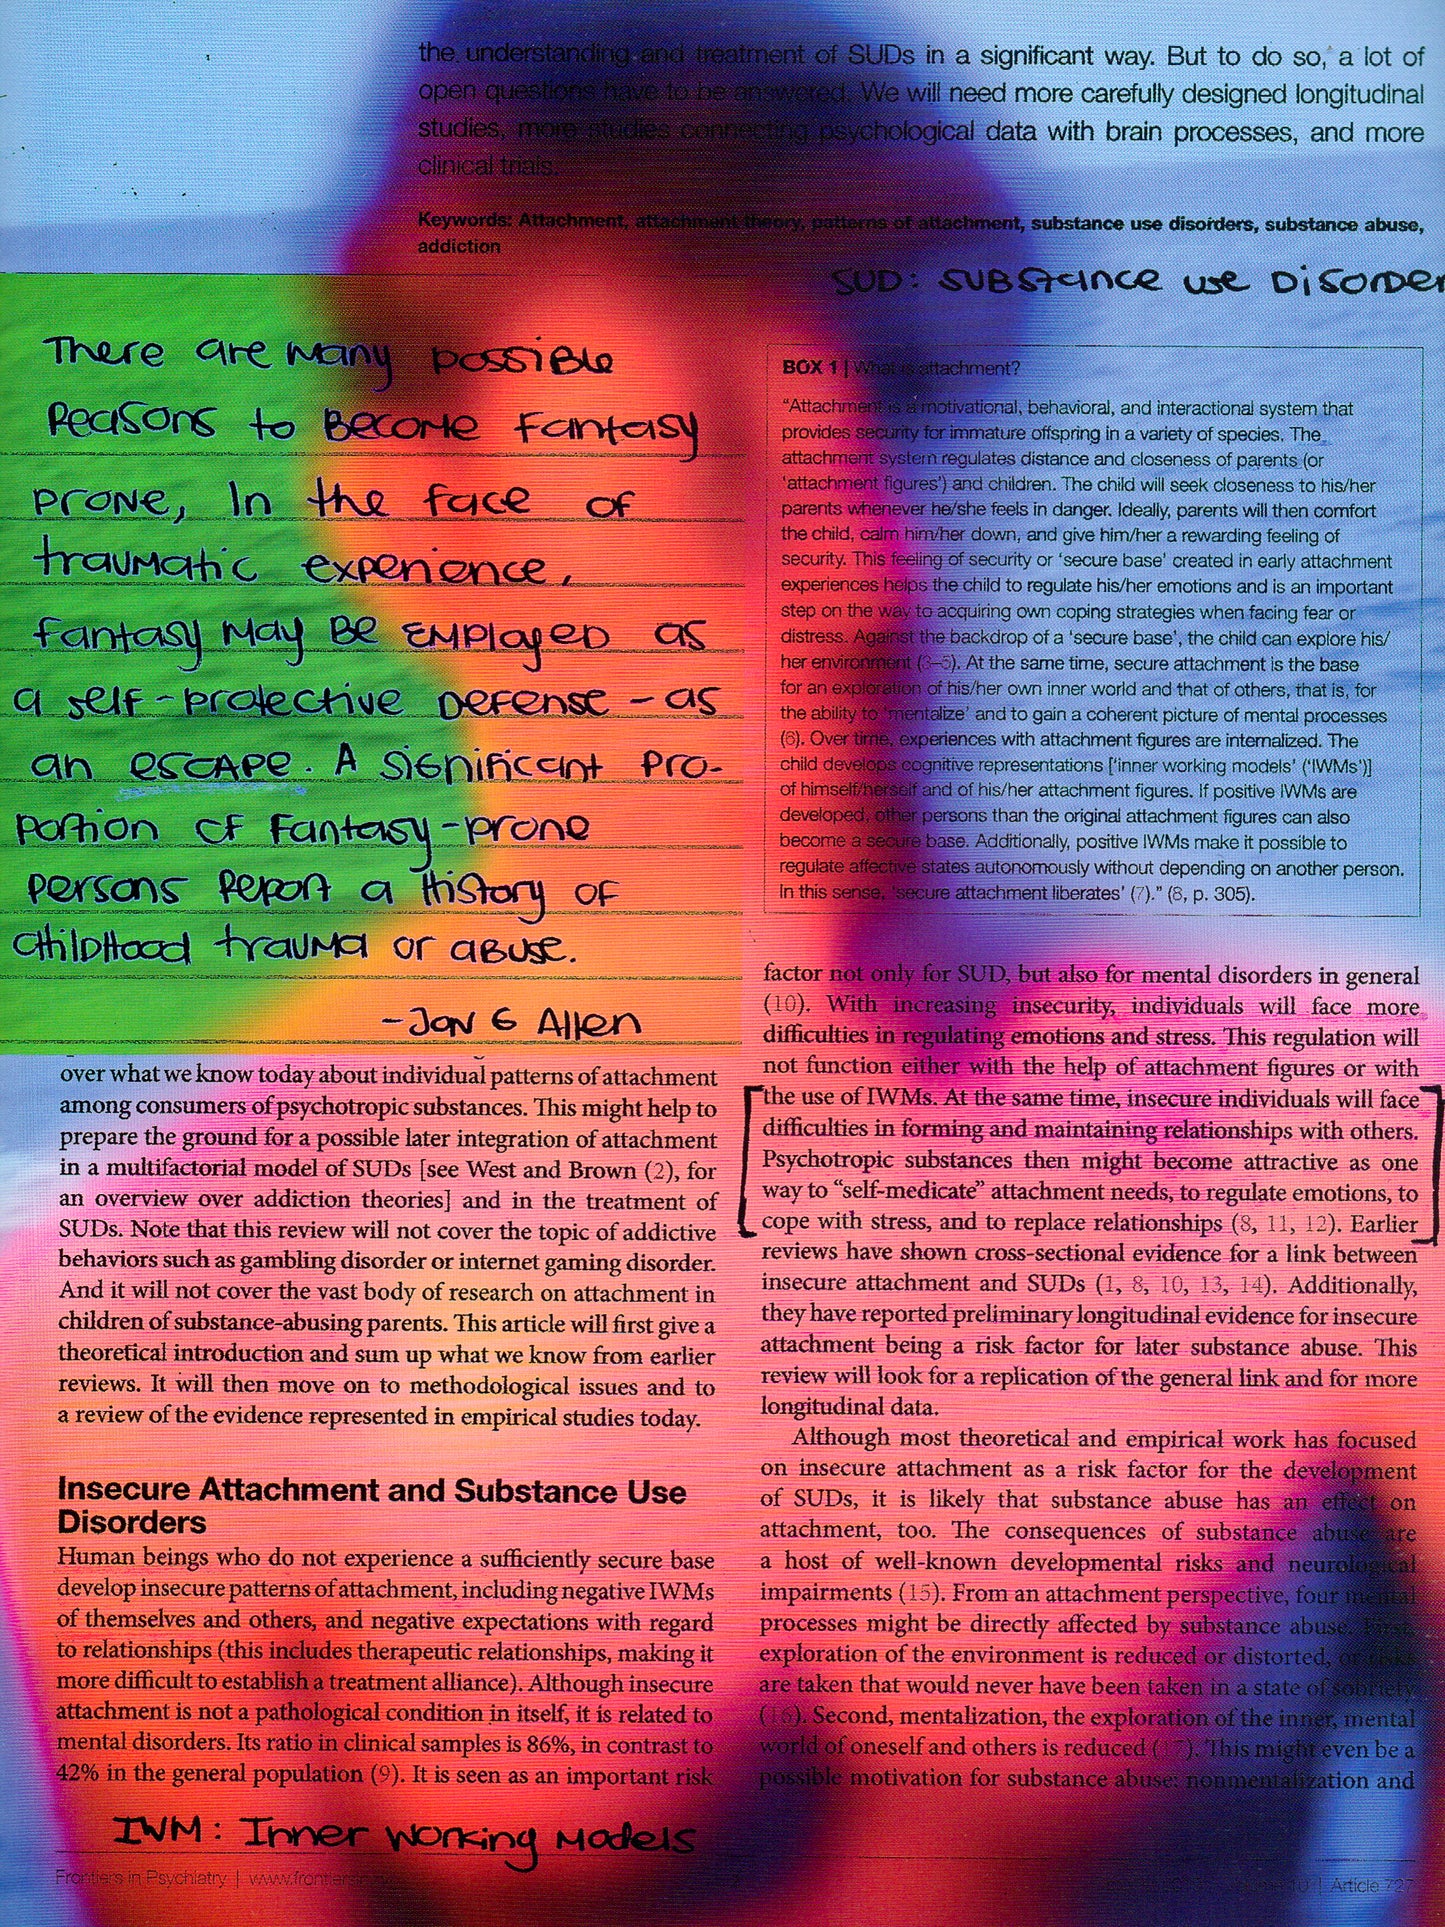 the understanding and treatment of SUDs in a significant way. But to do so, a lot of
open questions have to be answered. We will need more carefully designed longitudinal
studies, more studies connecting psychological data with brain processes, and more
clinical trials.
Keywords: Attachment, attachment theory, patterns of attachment, substance use disorders, substance abuse,
addiction
SUD: SUBStance use DiSORDer
There are many possible
Reasons to Become fantasy
prone, In the face of
traumatic experience,
fantasy may Be EMPloyeD as
a self-protective Defense - as
an escape. A significant pro-
portion of fantasy-prone
persons Report a History of
childhood trauma or abuse.
-Jon G Allen
over what we know today about individual patterns of attachment
among consumers of psychotropic substances. This might help to
prepare the ground for a possible later integration of attachment
in a multifactorial model of SUDs [see West and Brown (2), for
an overview over addiction theories] and in the treatment of
SUDs. Note that this review will not cover the topic of addictive
behaviors such as gambling disorder or internet gaming disorder.
And it will not cover the vast body of research on attachment in
children of substance-abusing parents. This article will first give a
theoretical introduction and sum up what we know from earlier
reviews. It will then move on to methodological issues and to
a review of the evidence represented in empirical studies today.
Insecure Attachment and Substance Use
Disorders
Human beings who do not experience a sufficiently secure base
develop insecure patterns of attachment, including negative IWMs
of themselves and others, and negative expectations with regard
to relationships (this includes therapeutic relationships, making it
more difficult to establish a treatment alliance). Although insecure
attachment is not a pathological condition in itself, it is related to
mental disorders. Its ratio in clinical samples is 86%, in contrast to
42% in the general population (9). It is seen as an important risk
IWM: Inner Working Models
BOX 1 | What is attachment?
“Attachment is a motivational, behavioral, and interactional system that
provides security for immature offspring in a variety of species. The
attachment system regulates distance and closeness of parents (or
‘attachment figures’) and children. The child will seek closeness to his/her
parents whenever he/she feels in danger. Ideally, parents will then comfort
the child, calm him/her down, and give him/her a rewarding feeling of
security. This feeling of security or ‘secure base’ created in early attachment
experiences helps the child to regulate his/her emotions and is an important
step on the way to acquiring own coping strategies when facing fear or
distress. Against the backdrop of a ‘secure base’, the child can explore his/
her environment (3–5). At the same time, secure attachment is the base
for an exploration of his/her own inner world and that of others, that is, for
the ability to ‘mentalize’ and to gain a coherent picture of mental processes
(6). Over time, experiences with attachment figures are internalized. The
child develops cognitive representations [‘inner working models’ (‘IWMs’)]
of himself/herself and of his/her attachment figures. If positive IWMs are
developed, other persons than the original attachment figures can also
become a secure base. Additionally, positive IWMs make it possible to
regulate affective states autonomously without depending on another person.
In this sense, ‘secure attachment liberates’ (7).” (8, p. 305).
factor not only for SUD, but also for mental disorders in general
(10). With increasing insecurity, individuals will face more
difficulties in regulating emotions and stress. This regulation will
not function either with the help of attachment figures or with
the use of IWMs. At the same time, insecure individuals will face
difficulties in forming and maintaining relationships with others.
Psychotropic substances then might become attractive as one
way to “self-medicate” attachment needs, to regulate emotions, to
cope with stress, and to replace relationships (8, 11, 12). Earlier
reviews have shown cross-sectional evidence for a link between
insecure attachment and SUDs (1, 8, 10, 13, 14). Additionally,
they have reported preliminary longitudinal evidence for insecure
attachment being a risk factor for later substance abuse. This
review will look for a replication of the general link and for more
longitudinal data.
Although most theoretical and empirical work has focused
on insecure attachment as a risk factor for the development
of SUDs, it is likely that substance abuse has an effect on
attachment, too. The consequences of substance abuse are
a host of well-known developmental risks and neurological
impairments (15). From an attachment perspective, four mental
processes might be directly affected by substance abuse. First,
exploration of the environment is reduced or distorted, or risks
are taken that would never have been taken in a state of sobriety
(16). Second, mentalization, the exploration of the inner, mental
world of oneself and others is reduced (17). This might even be a
possible motivation for substance abuse: nonmentalization and
Frontiers in Psychiatry | 
| Article 727